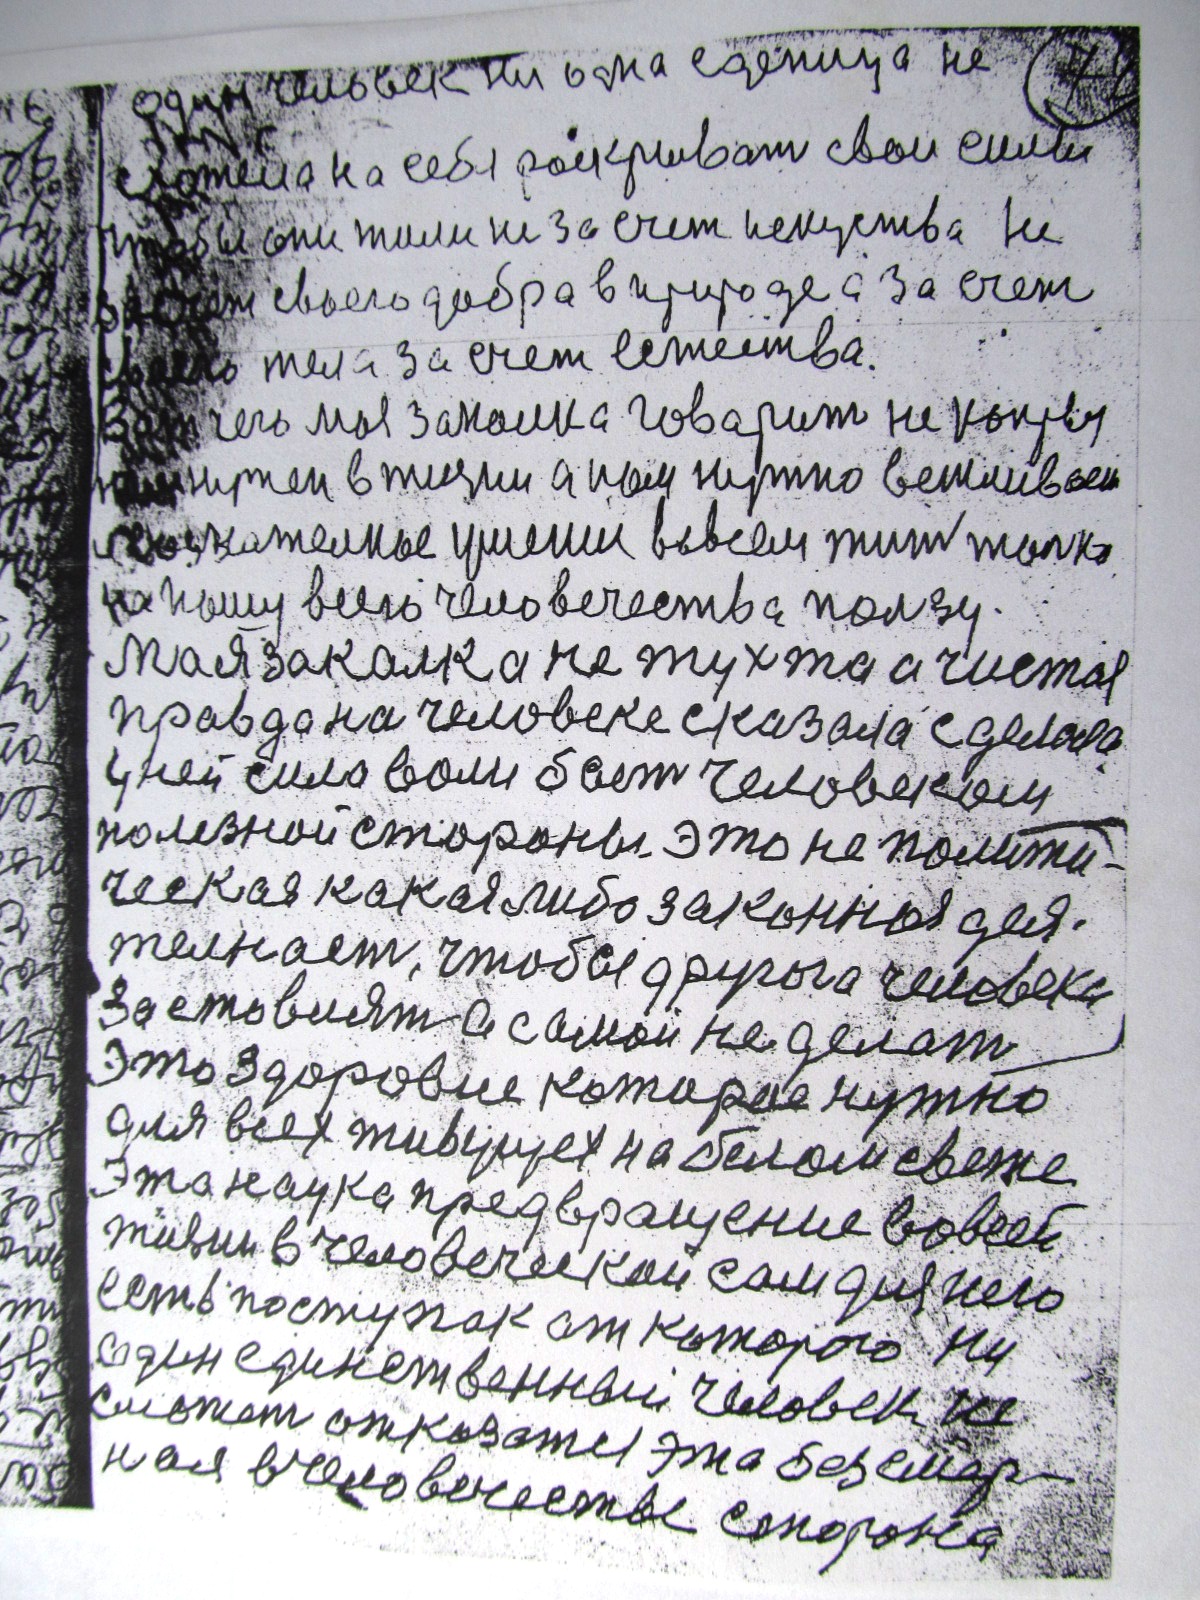 один человек ни одна еденица не
на себя роскриват свои силы
чтобы они жили не за счет искуства не
за счет своего добра в природе а за счет
своего тела за счет естества.
моя закалка говарит не
в жизни а нам нужно вежливоеи
умении вовсем жит толко
на нашу всего человечества ползу.
Мая закалка не тухта а чистая
правда на человеке сказала сделала
у ней сила воли бает человеком
полезной стороны. Это не полити-
ческая какая либо законная дея.
телнаст, чтобы другога человека
заставлят а самой не делат
Это здоровие которае нужно
для всех живущех на белом свете
Эта наука предвращение во всей
жизни в человеческой сам для него
есть поступак от которого ни
один единственный человек не
сможет отказатся эта безсмер-
ная в человечестве сторона